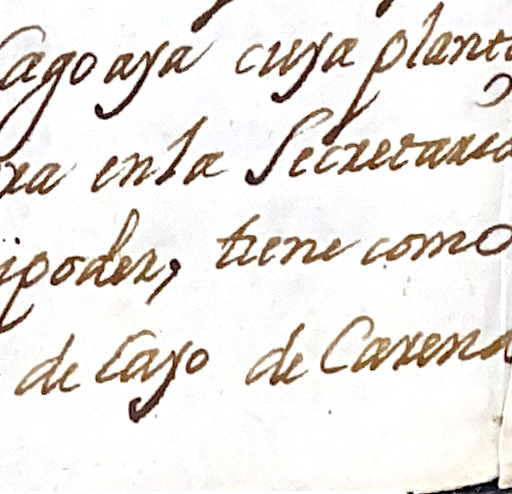 Cagoaya cuya planta
ra en la Secretaria
i poder, tiene como
de Cayo de Carena